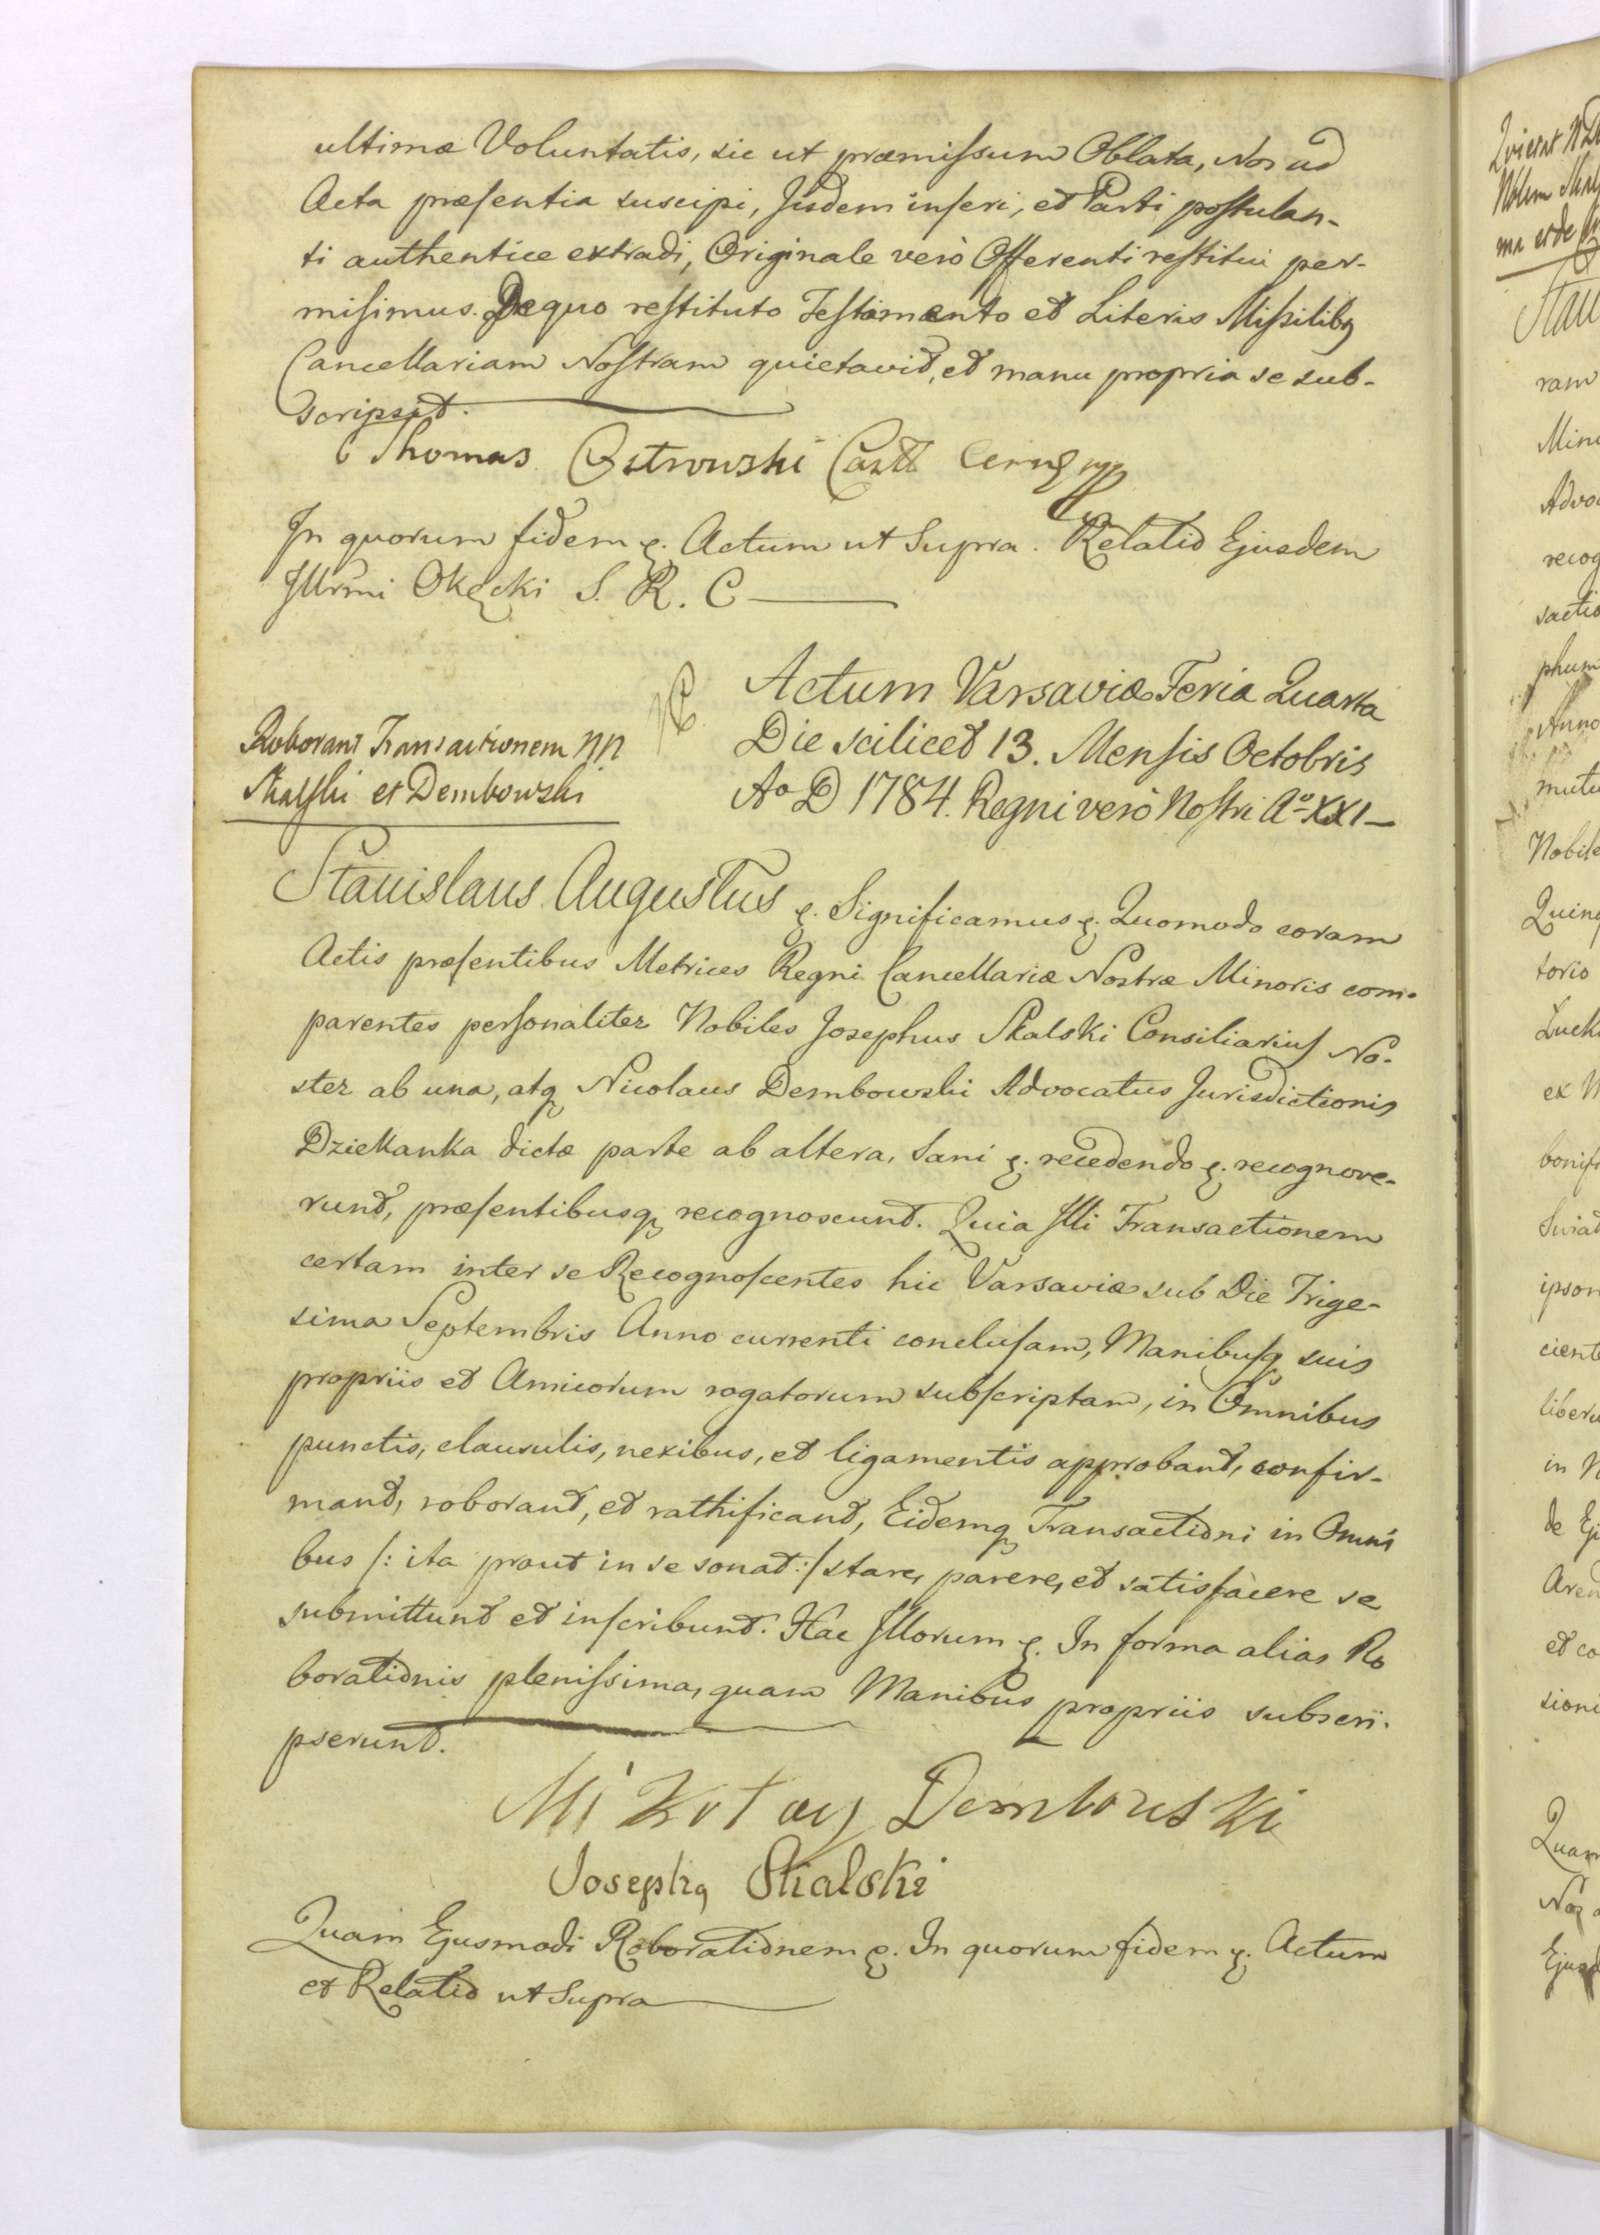 ultimæ Voluntatis, sic ut præmissum Oblata, Nos ad
Acta præsentia suscipi, Jisdem inseri, et Parti postulan-
ti authentice extradi, Originale verò Offerenti restitui per-
misimus. De quo restituto Testamento et Literis Missilibq
Cancellariam Nostram quietavit, et manu propria se sub-
scripsit.
Thomas Ostrowski Castt Cerng mp
In quorum fidem &. Actum ut Supra. Relatio Ejusdem
Jllrmi Okęcki S. R. C
Actum Varsaviæ Feria Quarta
Die scilicet 13. Mensis Octobris
Ao D 1784. Regni verò Nostri Ao XXI
Roborant Transactionem NN
Skalski et Dembowski
Stanislaus Augustus &. Significamus &. Quomodo coram
Actis præsentibus Metrices Regni Cancellariæ Nostræ Minoris com-
parentes personaliter Nobiles Josephus Skalski Consiliarius No-
ster ab una, atq Nicolaus Dembowski Advocatus Jurisdictionis
Dziekanka dictæ parte ab altera, Sani &. recedendo &. recognove-
runt, præsentibusq recognoscunt. Quia Jlli Transactionem
certam inter se Recognoscentes hic Varsaviæ sub Die Trige-
sima Septembris Anno currenti conclusam, Manibusq suis
propriis et Amicorum rogatorum subscriptam, in Omnibus
punctis, clausulis, nexibus, et ligamentis approbant, confir-
mant, roborant, et rathificant, Eidemq Transactioni in Omni
bus /: ita prout in se sonat :/ stare, parere, et satisfacere se
submittunt et inscribunt. Hac Jllorum &. In forma alias Ro
borationis plenissima, quam Manibus propriis subscri-
pserunt.
Mikołay Dembowski
Josephq Skalski
Quam Ejusmodi Roborationem &. In quorum fidem &. Actum
et Relatio ut Supra
Stan
ram
Min
Advo
recog
sactio
phum
Anno
mutu
Nobile
Quinq
torio
Luck
ex
bonif
ipson
cient
liber
in
de Ej
Aren
et co
sioni
Quam
Ejusd